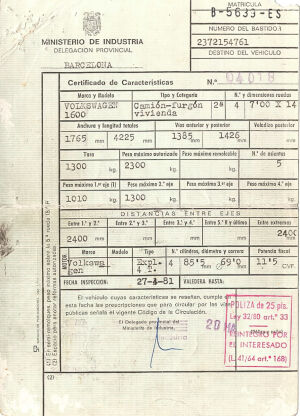 MATRICULA
B-5633-ES
MINISTERIO DE INDUSTRIA
DELEGACION PROVINCIAL
NUMERO DEL BASTIDOR
2372154761
DESTINO DEL VEHICULO
BARCELONA
Certificado de Características N.º 04018
Marca y Modelo Tipo y Categoría N.º y dimensiones ruedas
VOLKSWAGEN 1600 Camión-furgón vivienda 2ª 4 7'00 x 14
Anchura y longitud totales Vías anterior y posterior Voladizo posterior
1765 mm 4225 mm 1385 mm 1426 mm
Tara Peso máximo autorizado Peso máximo remolcable N.º de asientos
1300 kg. 2300 kg. 5
Peso máximo 1.er eje (1) Peso máximo 2.º eje Peso máximo 3.er eje Peso máximo 4.º eje
1010 kg. 1300 kg.
DISTANCIAS ENTRE EJES
Entre 1.º y 2.º Entre 2.º y 3.º Entre 3.º y 4.º Entre extremos
2400 mm 2400
MOTOR Marca Modelo Tipo N.º cilindros, diámetro y carrera Potencia fiscal
Volkswagen Expl. 4 T. 4 85'5 69'0 11'5 CVF.
FECHA INSPECCION: 27-3-81 VALEDERA HASTA:
El vehículo cuyas características se reseñan, cumple en esta fecha las prescripciones que para circular por las vías públicas señala el vigente Código de la Circulación.
El Delegado provincial del Ministerio de Industria,
20 MA
POLIZA de 25 pts.
Ley 32/80 art.º 33
REINTEGRO POR
EL INTERESADO
(L. 41/64 art.º 168)
(2)